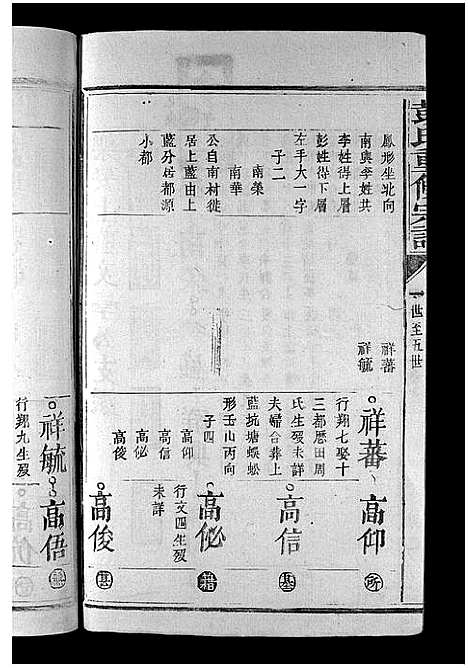 彭氏重修宗譜
一世至五世
鳳形坐北向
南與李姓共
李姓得上層
彭姓得下層
左手大一字
子二
南榮
南華
公自南村徙
居上藍由上
藍分居都源
小都
祥蕃
祥毓
祥蕃
行翔七娶十
三都曆田周
氏生歿未詳
夫婦合葬上
藍坑塘蜈蚣
形壬山丙向
子四
高仰
高信
高佖
高俊
高仰
所
高信
基
高佖
行文四生歿
未詳
籍
高俊
甚
祥毓
行翔九生歿
高俉
高